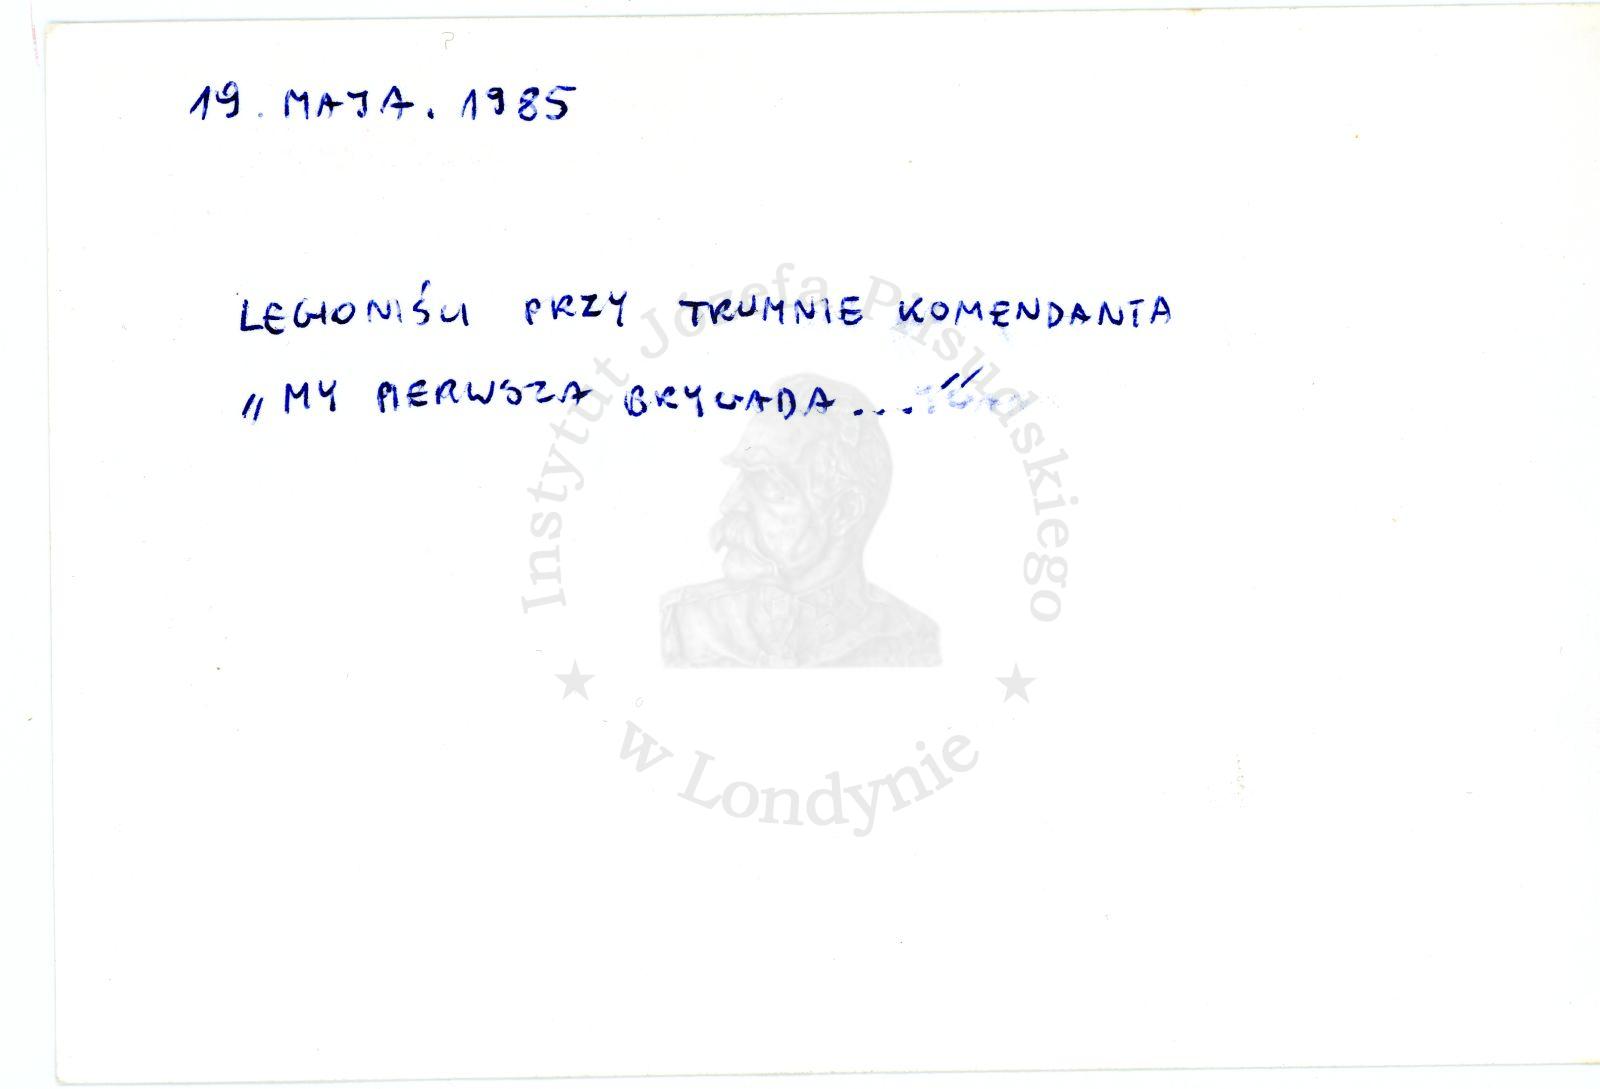 19. MAJA. 1985
LEGIONIŚCI PRZY TRUMNIE KOMENDANTA
„MY PIERWSZA BRYGADA..."
Instytut Józefa Piłsudskiego
w Londynie